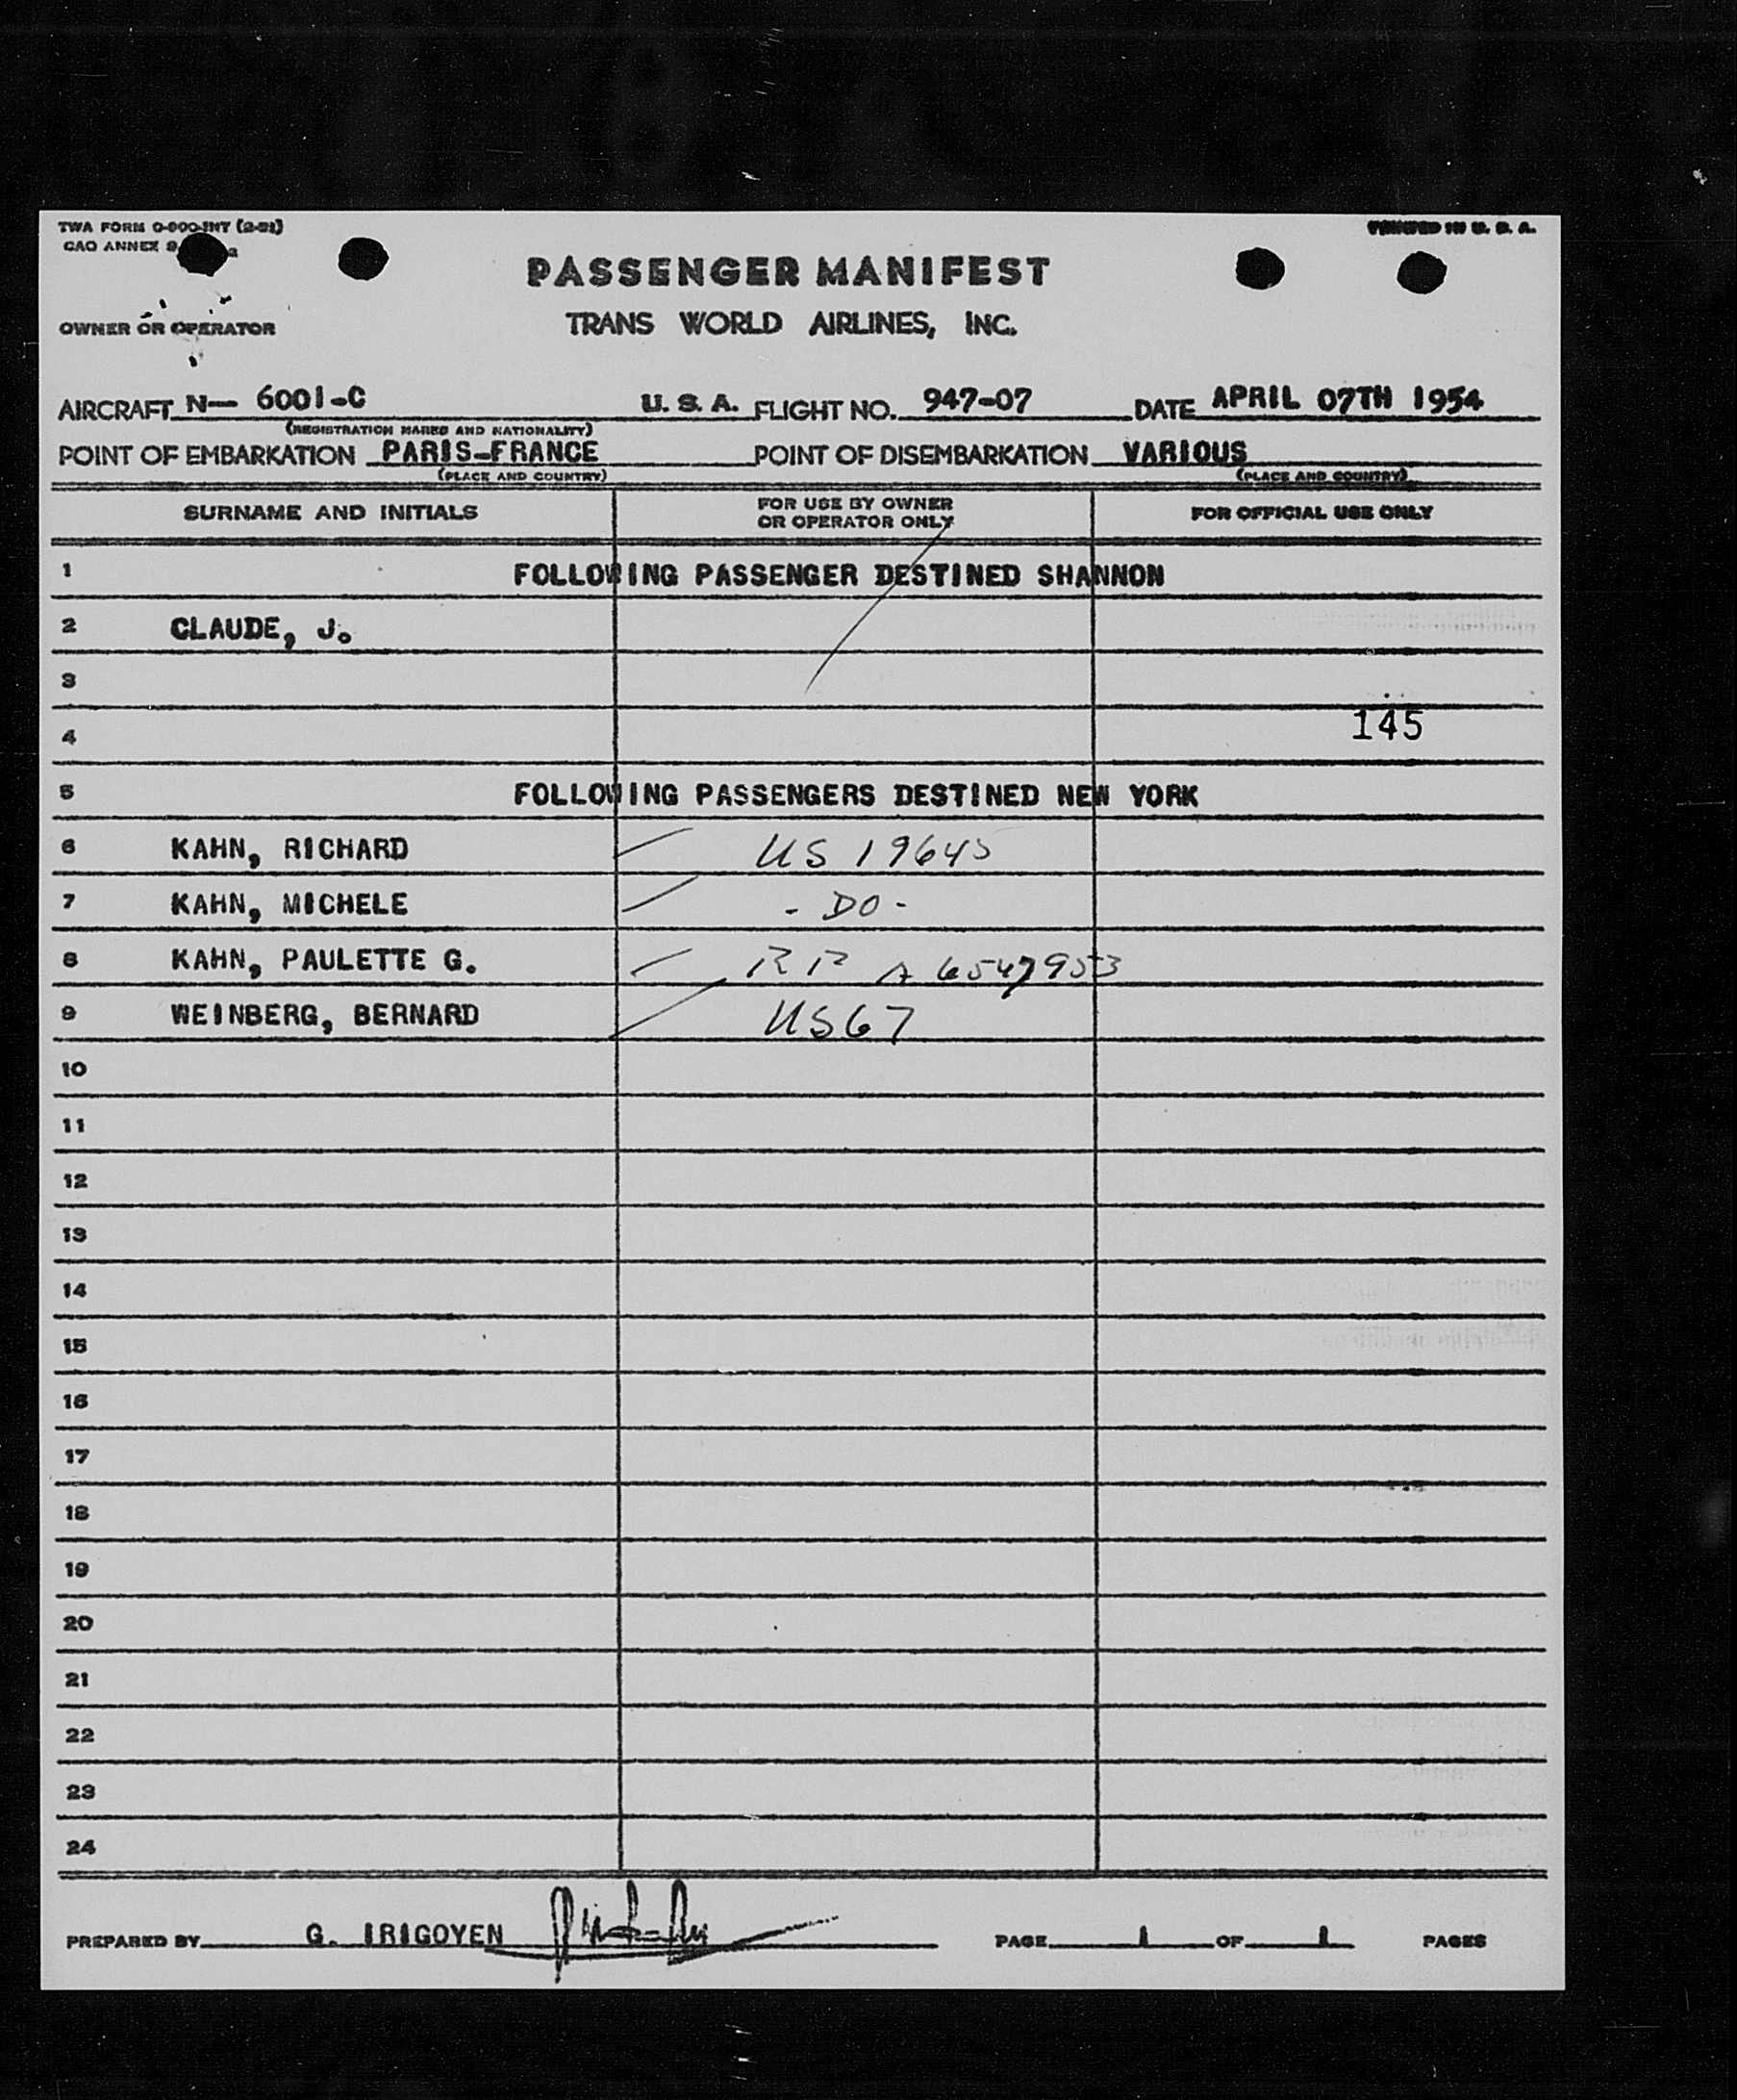 TWA FORM O-900-INT (2-51)
CAO ANNEX 9,
PRINTED IN U. S. A.
PASSENGER MANIFEST
OWNER OR OPERATOR
TRANS WORLD AIRLINES, INC.
AIRCRAFT N— 6001-C U. S. A. FLIGHT NO. 947-07 DATE APRIL 07TH 1954
(REGISTRATION MARKS AND NATIONALITY)
POINT OF EMBARKATION PARIS-FRANCE POINT OF DISEMBARKATION VARIOUS
(PLACE AND COUNTRY) (PLACE AND COUNTRY)
SURNAME AND INITIALS
FOR USE BY OWNER
OR OPERATOR ONLY
FOR OFFICIAL USE ONLY
1 FOLLOWING PASSENGER DESTINED SHANNON
2 CLAUDE, J.
3
4 145
5 FOLLOWING PASSENGERS DESTINED NEW YORK
6 KAHN, RICHARD US 19645
7 KAHN, MICHELE - DO -
8 KAHN, PAULETTE G. RP A 6547953
9 WEINBERG, BERNARD US67
10
11
12
13
14
15
16
17
18
19
20
21
22
23
24
PREPARED BY G. IRIGOYEN PAGE 1 OF 1 PAGES